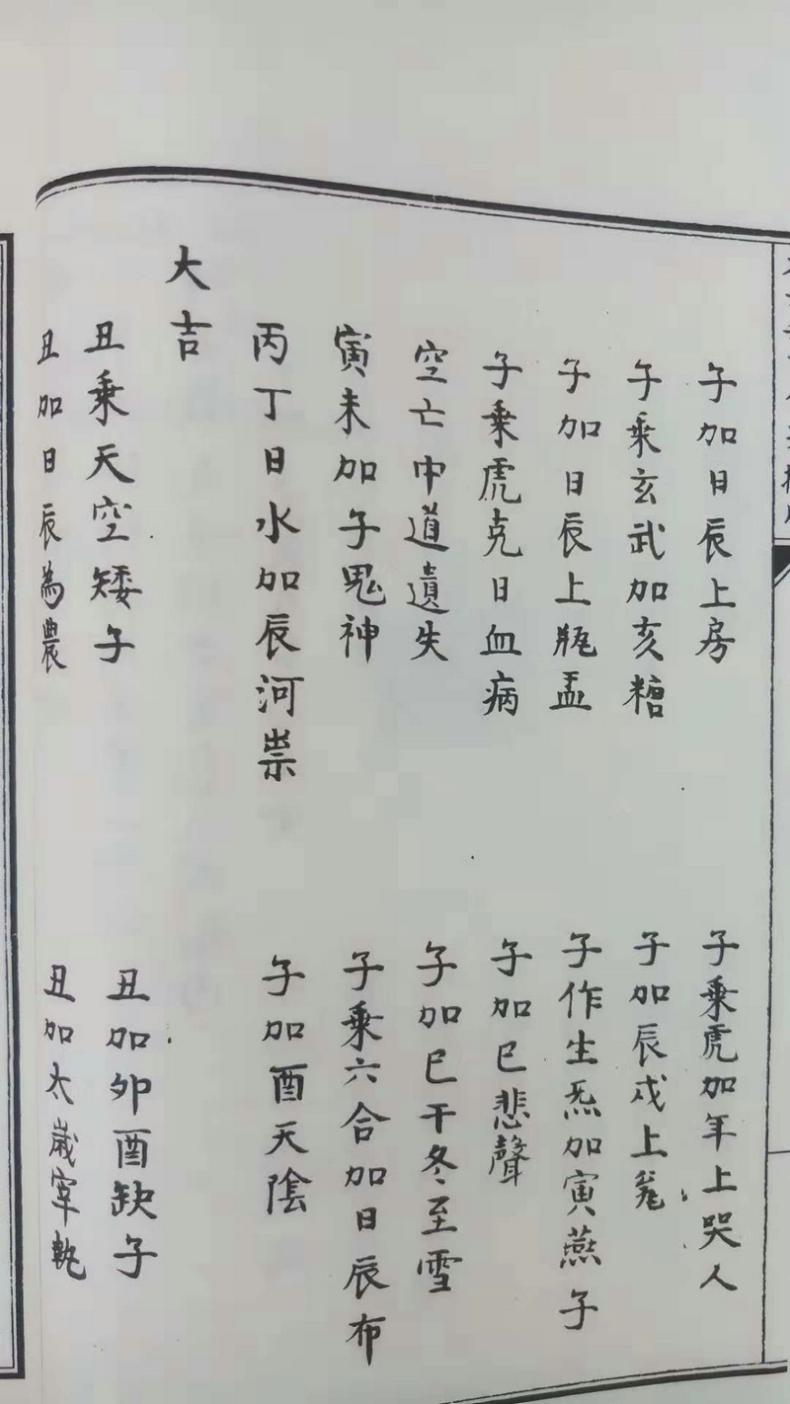 子加日辰上房
子乘虎加年上哭人
子乘玄武加亥糖
子加辰戌上
子加日辰上瓶盂
子作生炁加寅燕子
子乘虎克日血病
子加巳悲聲
空亡中道遺失
子加巳干冬至雪
寅未加子鬼神
子乘六合加日辰布
丙丁日水加辰河祟
子加酉天陰
大吉
丑乘天空矮子
丑加卯酉缺子
丑加日辰為農
丑加太歲宰執